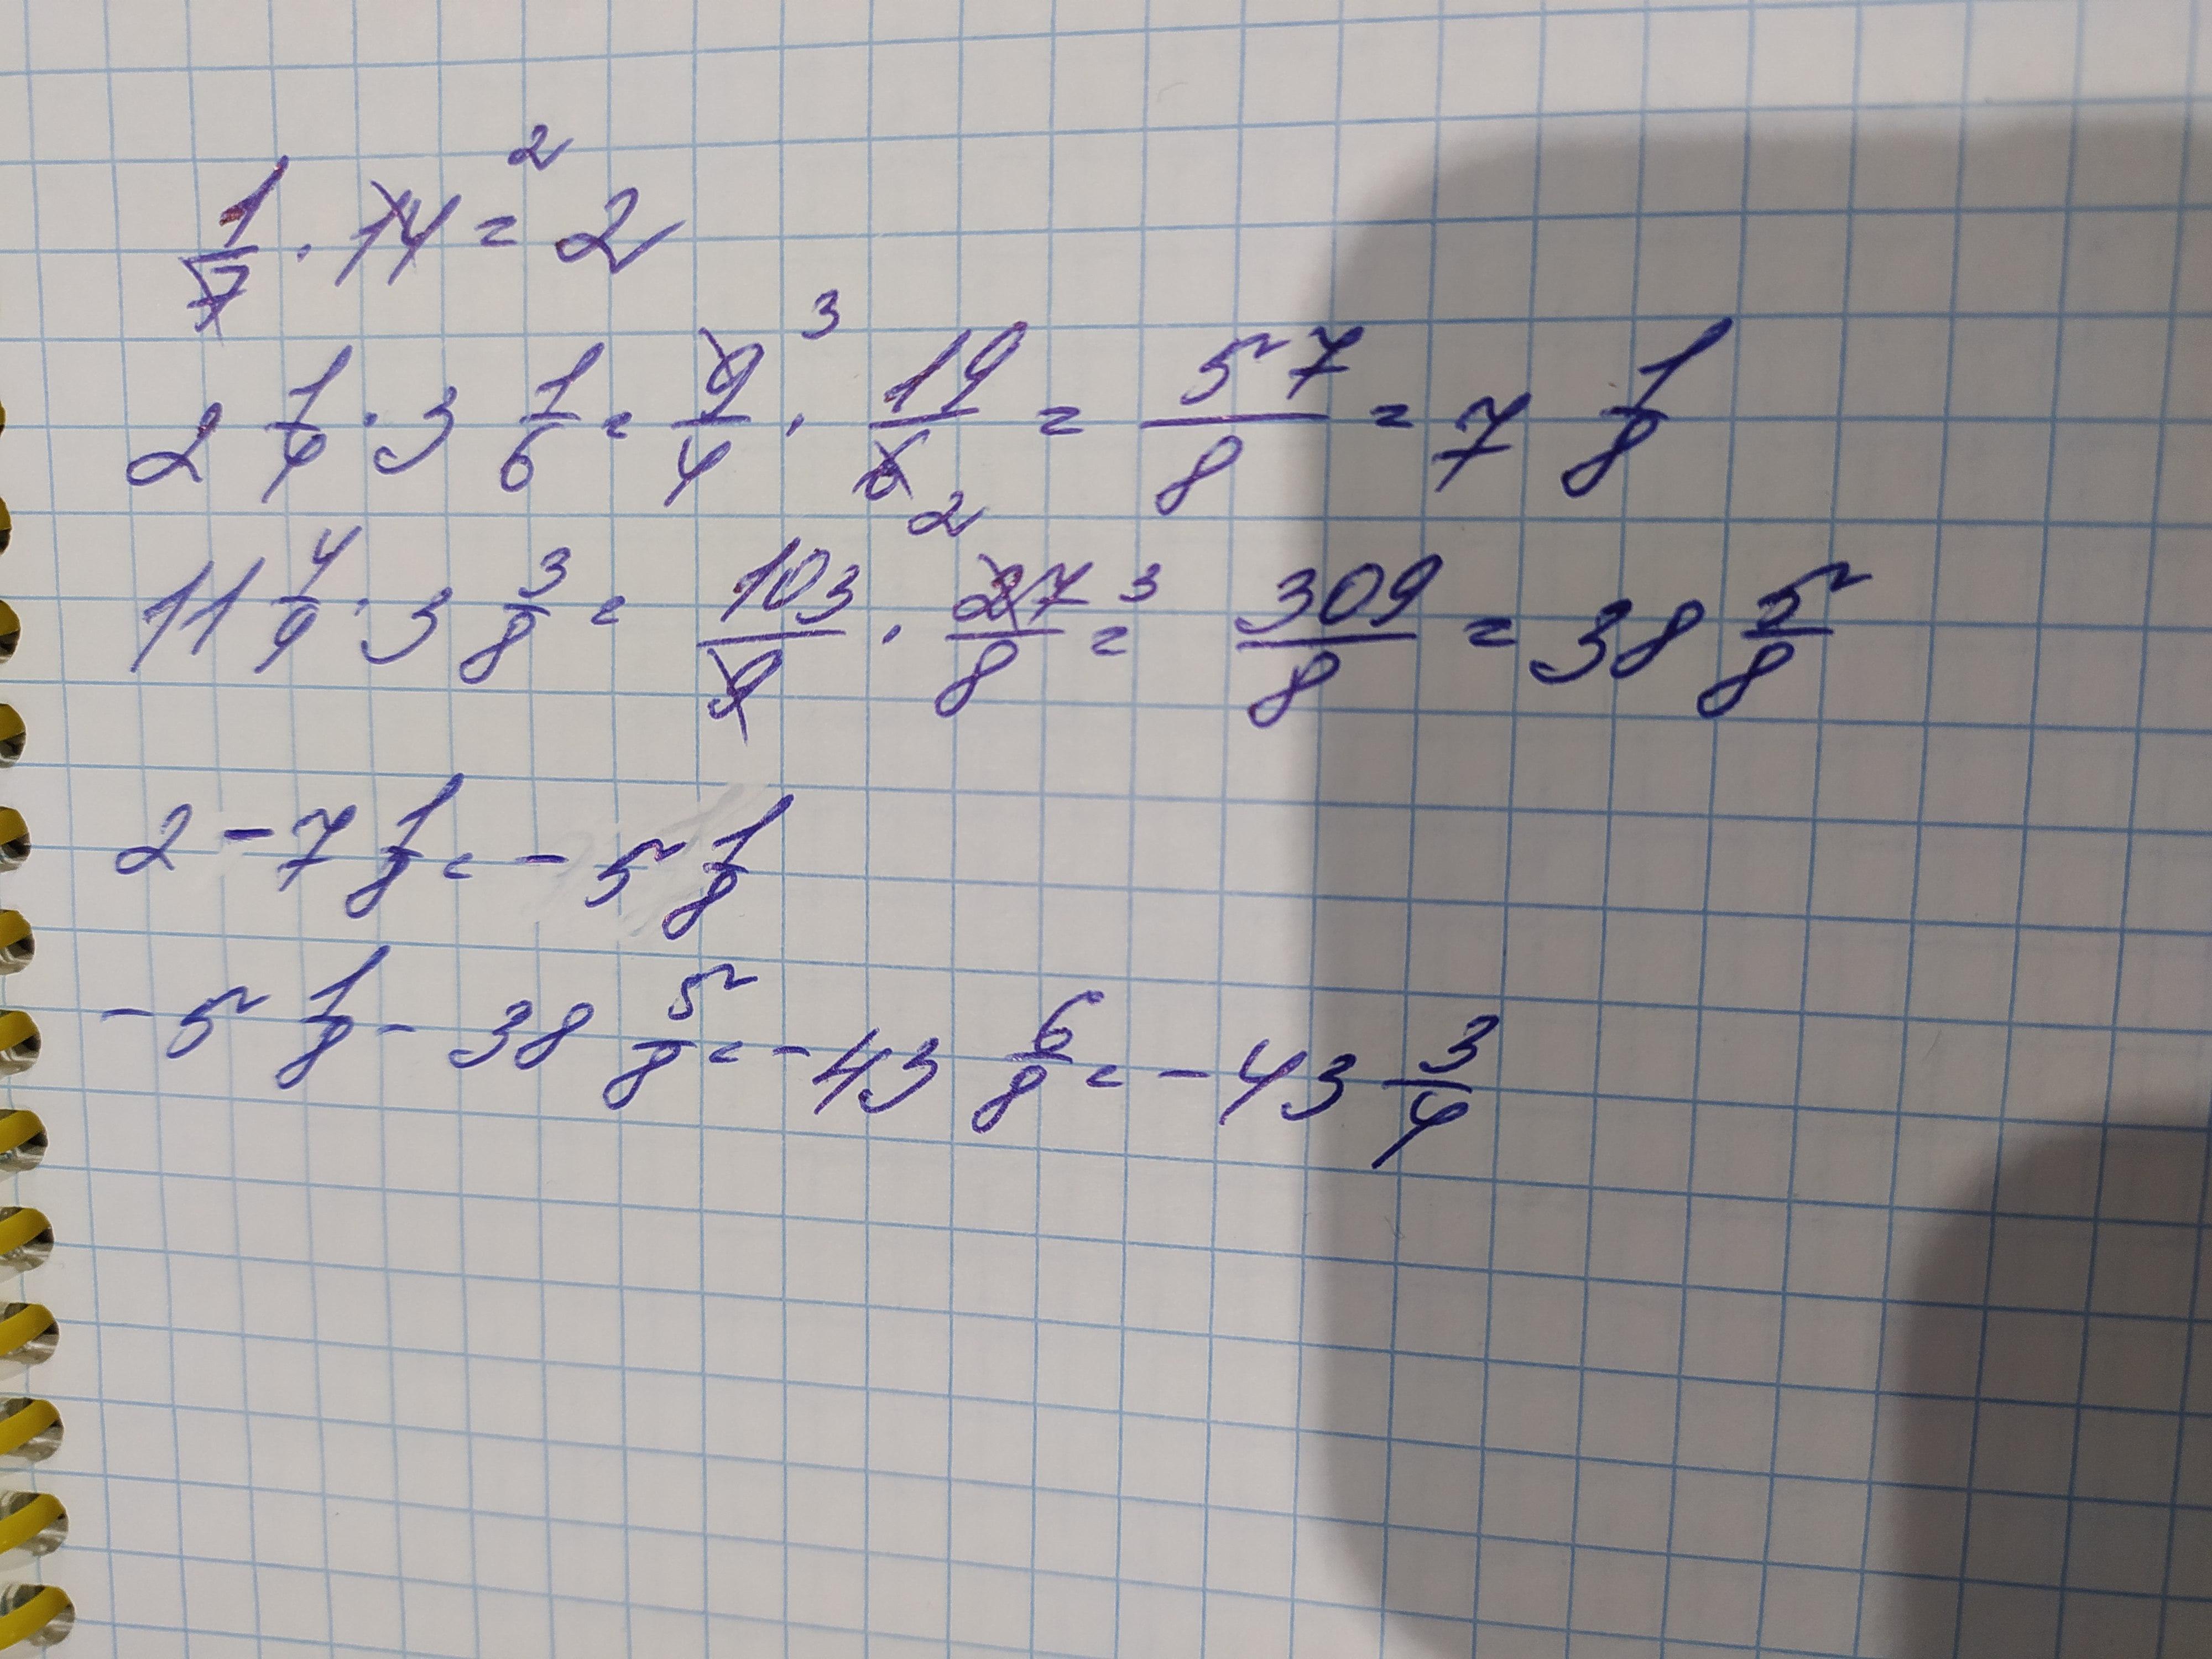 1/7 · 14 = 2 2
2 1/4 · 3 1/6 = 9/4 3 · 19/6 2 = 57/8 = 7 1/8
11 4/9 · 3 3/8 = 103/9 · 27/8 3 = 309/8 = 38 5/8
2 - 7 1/8 = - 5 1/8
- 5 1/8 - 38 5/8 = - 43 6/8 = - 43 3/4